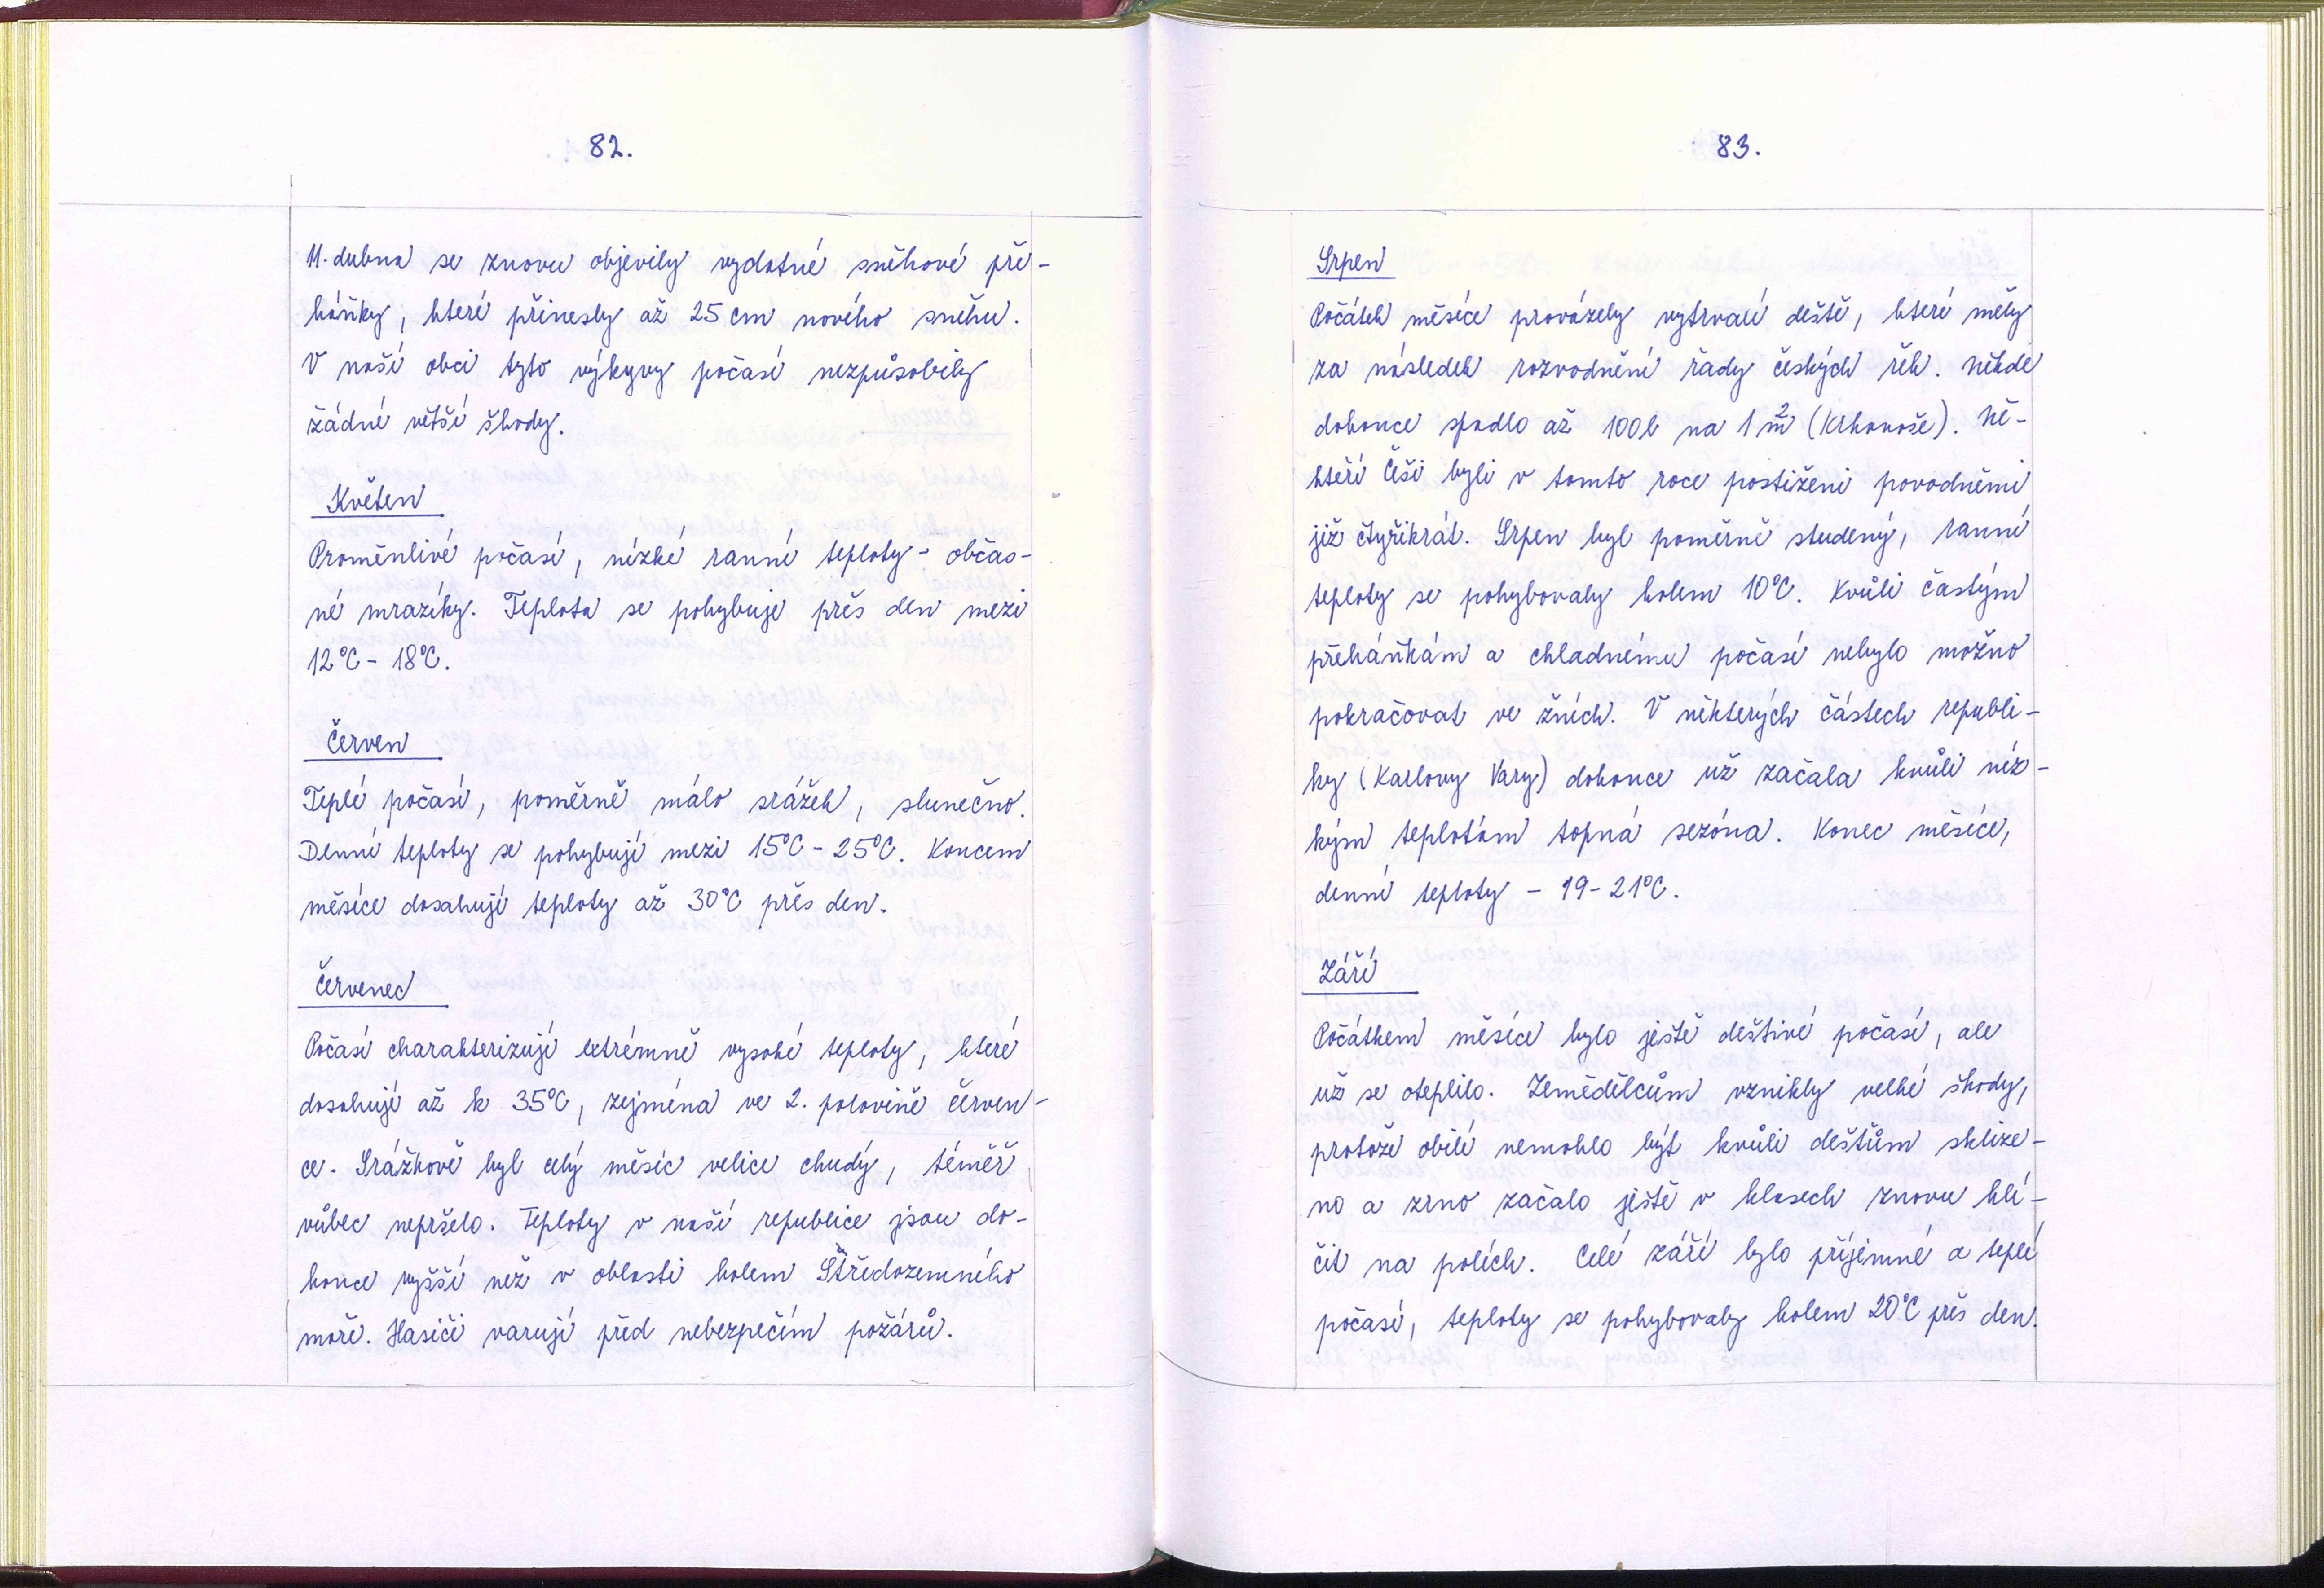 82.
11. dubna se znovu objevily vydatné sněhové pře-
háňky, které přinesly až 25 cm nového sněhu.
V naší obci tyto výkyvy počasí nezpůsobily
žádné větší škody.
Květen
Proměnlivé počasí, nízké ranní teploty - občas-
né mrazíky. Teplota se pohybuje přes den mezi
12°C - 18°C.
Červen
Teplé počasí, poměrně málo srážek, slunečno.
Denní teploty se pohybují mezi 15°C - 25°C. Koncem
měsíce dosahují teploty až 30°C přes den.
Červenec
Počasí charakterizují extrémně vysoké teploty, které
dosahují až k 35°C, zejména ve 2. polovině červen-
ce. Srážkově byl celý měsíc velice chudý, téměř
vůbec nepršelo. Teploty v naší republice jsou do-
konce vyšší než v oblasti kolem Středozemního
moře. Hasiči varují před nebezpečím požárů.
83.
Srpen
Počátek měsíce provázely vytrvalé deště, které měly
za následek rozvodnění řady českých řek. Někde
dokonce spadlo až 100 l na 1 m² (Krkonoše). Ně-
kteří Češi byli v tomto roce postiženi povodněmi
již čtyřikrát. Srpen byl poměrně studený, ranní
teploty se pohybovaly kolem 10°C. Kvůli častým
přeháňkám a chladnému počasí nebylo možno
pokračovat ve žních. V některých částech republi-
ky (Karlovy Vary) dokonce už začala kvůli níz-
kým teplotám topná sezóna. Konec měsíce,
denní teploty - 19-21°C.
Září
Počátkem měsíce bylo ještě deštivé počasí, ale
už se oteplilo. Zemědělcům vznikly velké škody,
protože obilí nemohlo být kvůli deštům sklize-
no a zrno začalo ještě v klasech znovu klí-
čit na polích. Celé září bylo příjemné a teplé
počasí, teploty se pohybovaly kolem 20°C přes den.